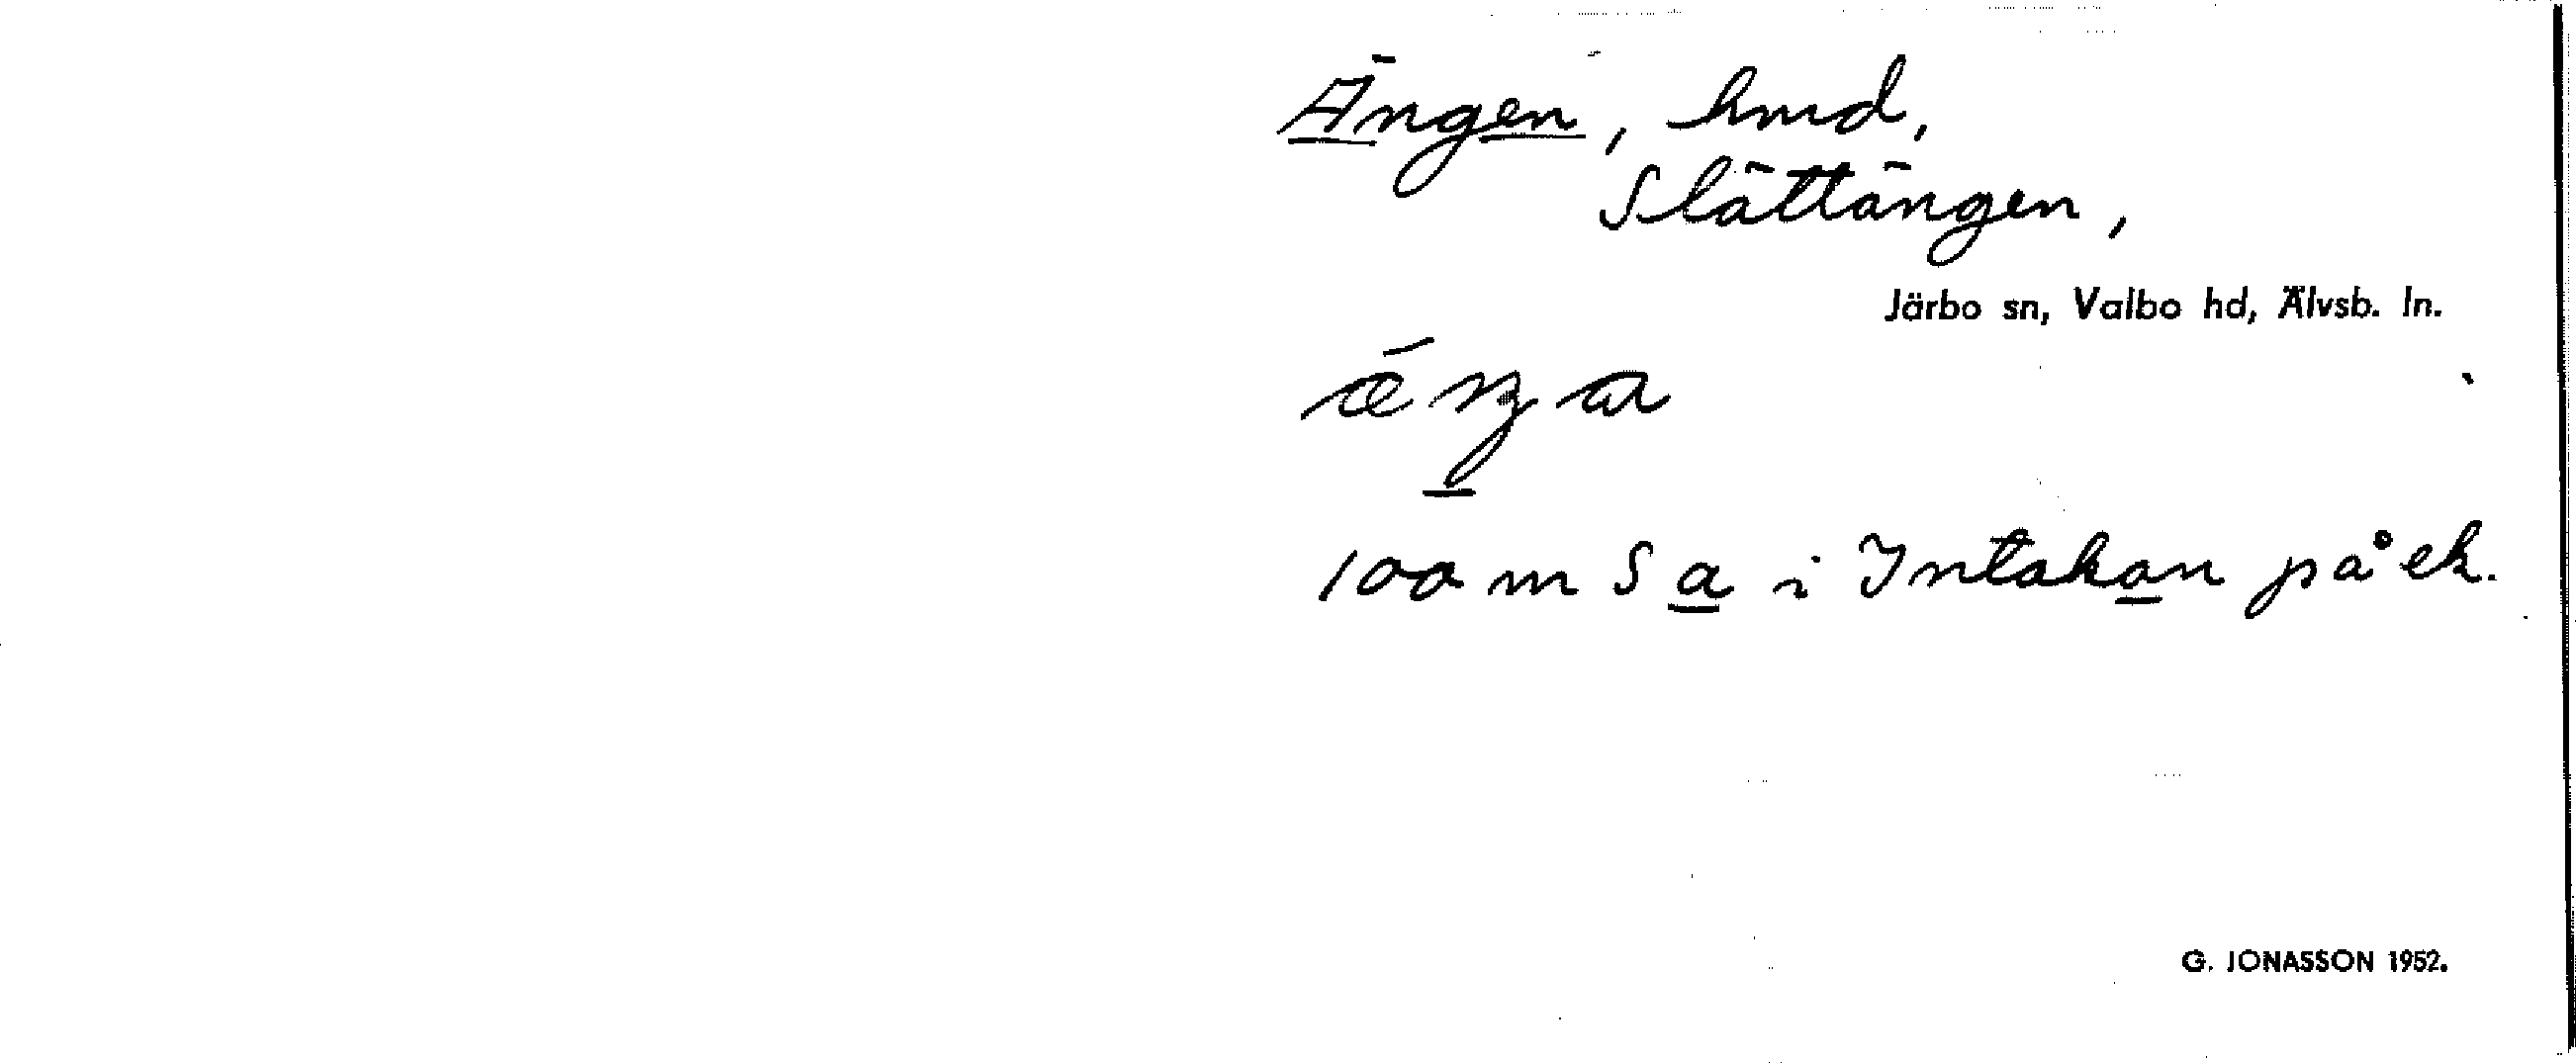 Ängen, hmd,
Slättängen,
Järbo sn, Valbo hd, Älvsb. ln.
100 m S a i Intakan på ek.
G. JONASSON 1952.